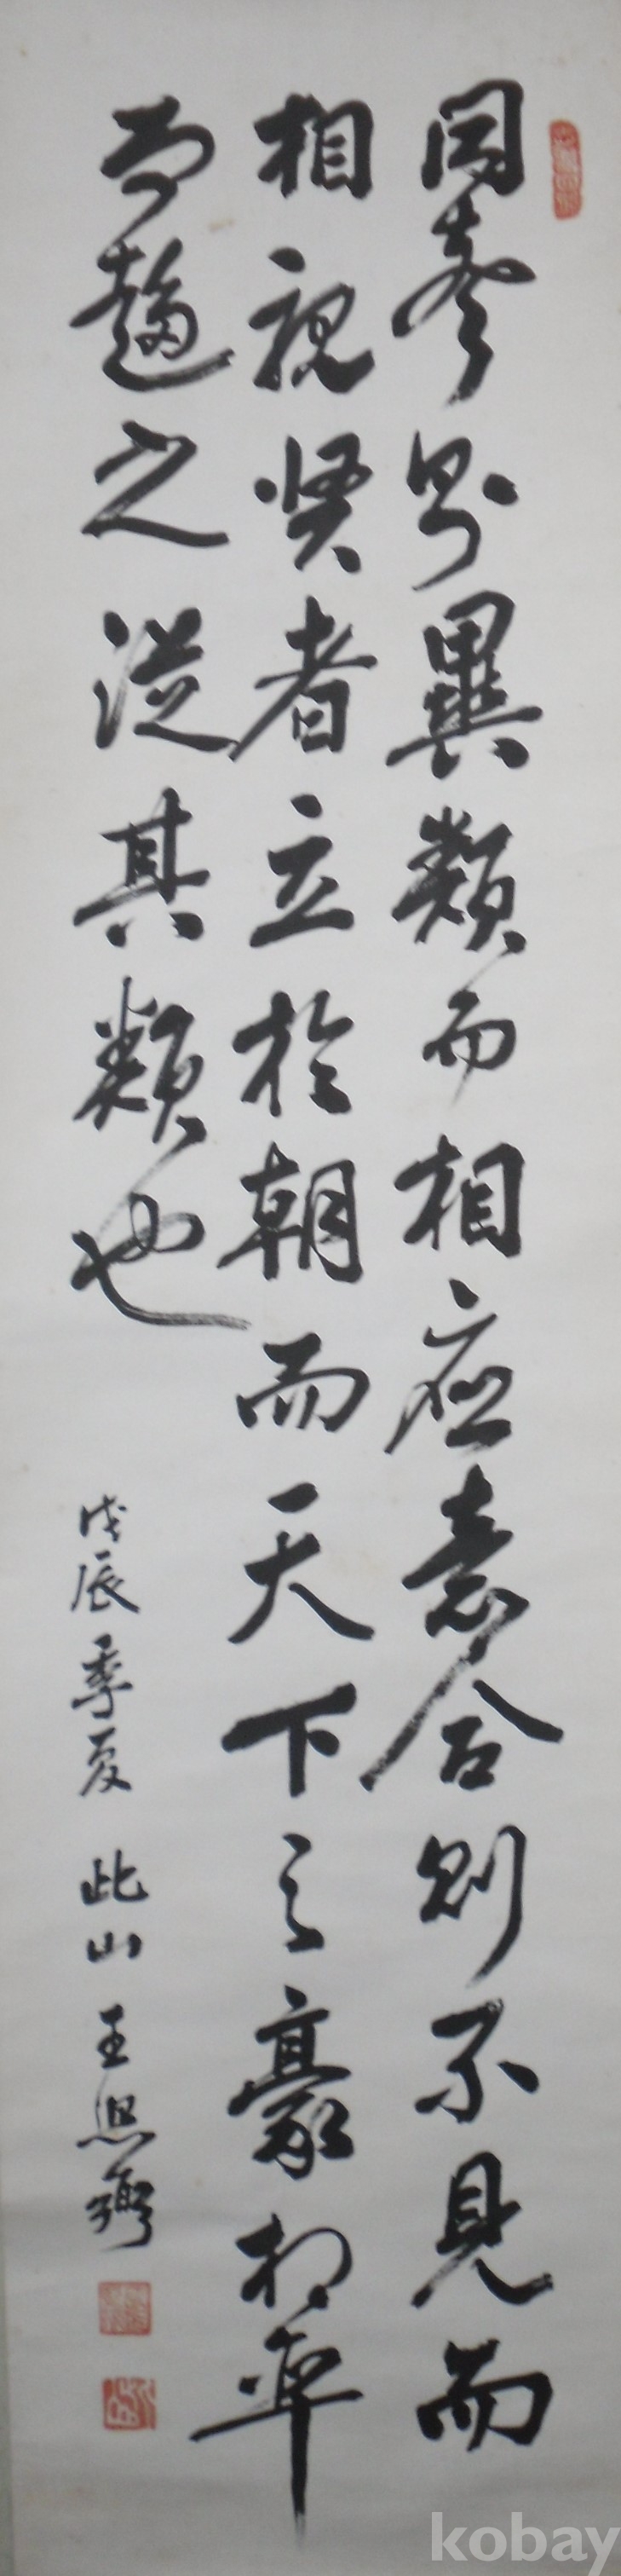 同声則異類而相応意合則不見而
相親賢者立於朝而天下之豪相率
而趨之従其類也
戊辰季夏 此山 王
kobay